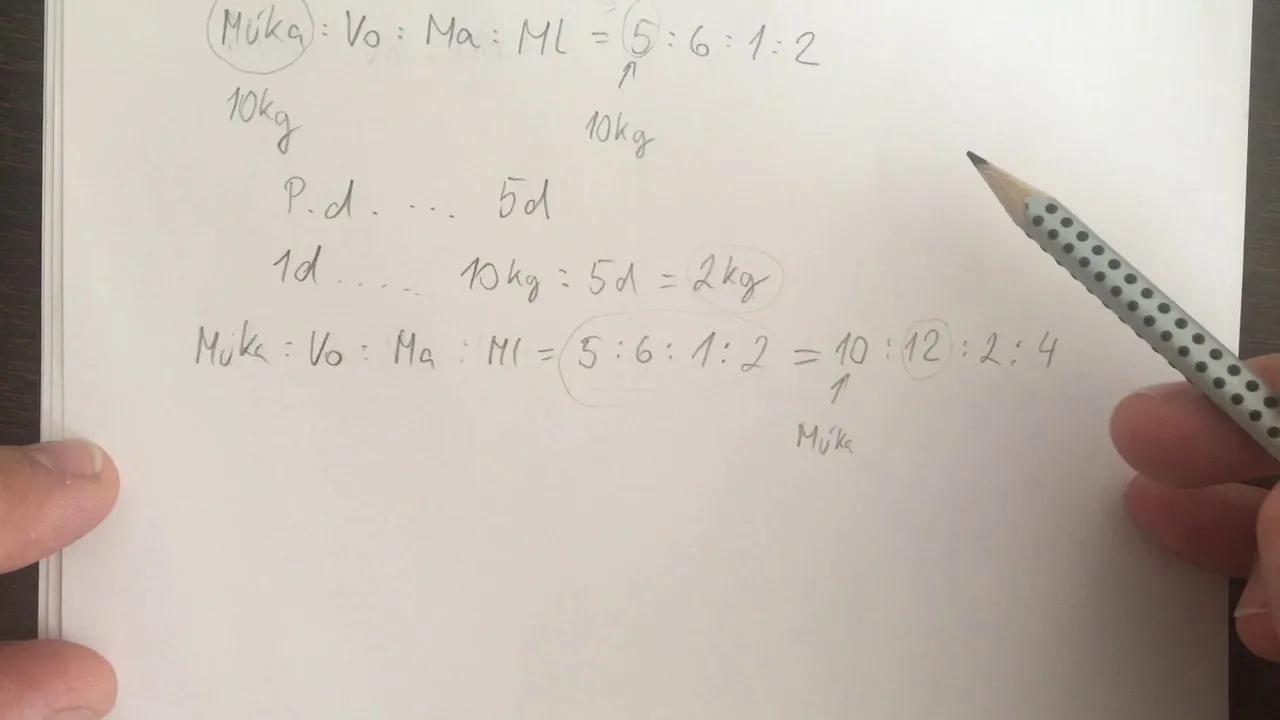 Múka : Vo : Ma : Ml = 5 : 6 : 1 : 2
↑
10kg 10kg
P.d. ... 5d
1d ..... 10kg : 5d = 2kg
Múka : Vo : Ma : Ml = 5 : 6 : 1 : 2 = 10 : 12 : 2 : 4
↑
Múka